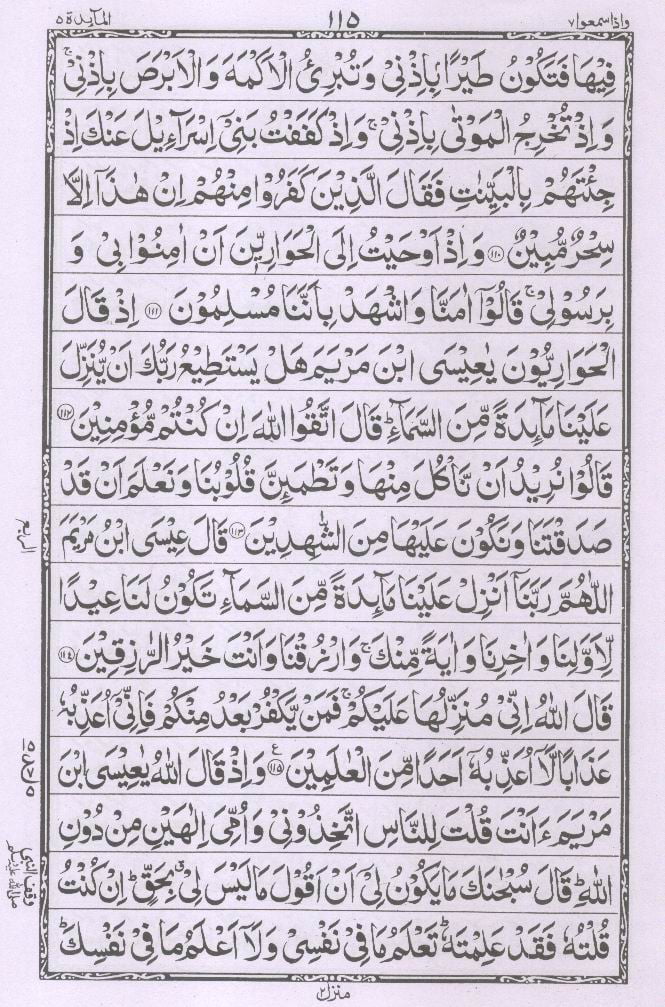 وَاِذَاسَمِعُوْا٧ ١١٥ المآئدة٥
فِيْهَا فَتَكُوْنُ طَيْرًۢا بِاِذْنِيْ وَ تُبْرِئُ الْاَكْمَهَ وَ الْاَبْرَصَ بِاِذْنِيْ ۚ
وَ اِذْ تُخْرِجُ الْمَوْتٰى بِاِذْنِيْ ۚ وَ اِذْ كَفَفْتُ بَنِيْۤ اِسْرَآءِيْلَ عَنْكَ اِذْ
جِئْتَهُمْ بِالْبَيِّنٰتِ فَقَالَ الَّذِيْنَ كَفَرُوْا مِنْهُمْ اِنْ هٰذَاۤ اِلَّا
سِحْرٌ مُّبِيْنٌ ﴿١١٠﴾ وَ اِذْ اَوْحَيْتُ اِلَى الْحَوَارِيّٖنَ اَنْ اٰمِنُوْا بِيْ وَ
بِرَسُوْلِيْ ۚ قَالُوْۤا اٰمَنَّا وَ اشْهَدْ بِاَنَّنَا مُسْلِمُوْنَ ﴿١١١﴾ اِذْ قَالَ
الْحَوَارِيُّوْنَ يٰعِيْسَى ابْنَ مَرْيَمَ هَلْ يَسْتَطِيْعُ رَبُّكَ اَنْ يُّنَزِّلَ
عَلَيْنَا مَآىِٕدَةً مِّنَ السَّمَآءِ ؕ قَالَ اتَّقُوا اللّٰهَ اِنْ كُنْتُمْ مُّؤْمِنِيْنَ ﴿١١٢﴾
قَالُوْا نُرِيْدُ اَنْ نَّاْكُلَ مِنْهَا وَ تَطْمَىِٕنَّ قُلُوْبُنَا وَ نَعْلَمَ اَنْ قَدْ
صَدَقْتَنَا وَ نَكُوْنَ عَلَيْهَا مِنَ الشّٰهِدِيْنَ ﴿١١٣﴾ قَالَ عِيْسَى ابْنُ مَرْيَمَ
الربع
اللّٰهُمَّ رَبَّنَاۤ اَنْزِلْ عَلَيْنَا مَآىِٕدَةً مِّنَ السَّمَآءِ تَكُوْنُ لَنَا عِيْدًا
لِّاَوَّلِنَا وَ اٰخِرِنَا وَ اٰيَةً مِّنْكَ ۚ وَ ارْزُقْنَا وَ اَنْتَ خَيْرُ الرّٰزِقِيْنَ ﴿١١٤﴾
قَالَ اللّٰهُ اِنِّيْ مُنَزِّلُهَا عَلَيْكُمْ ۚ فَمَنْ يَّكْفُرْ بَعْدُ مِنْكُمْ فَاِنِّيْۤ اُعَذِّبُهٗ
عَذَابًا لَّاۤ اُعَذِّبُهٗۤ اَحَدًا مِّنَ الْعٰلَمِيْنَ ﴿١١٥﴾ ع وَ اِذْ قَالَ اللّٰهُ يٰعِيْسَى ابْنَ
مَرْيَمَ ءَاَنْتَ قُلْتَ لِلنَّاسِ اتَّخِذُوْنِيْ وَ اُمِّيَ اِلٰهَيْنِ مِنْ دُوْنِ
اللّٰهِ ؕ قَالَ سُبْحٰنَكَ مَا يَكُوْنُ لِيْۤ اَنْ اَقُوْلَ مَا لَيْسَ لِيْ ۗ بِحَقٍّ ؕ اِنْ كُنْتُ
وقف النبى صلى الله عليه وسلم
قُلْتُهٗ فَقَدْ عَلِمْتَهٗ ؕ تَعْلَمُ مَا فِيْ نَفْسِيْ وَ لَاۤ اَعْلَمُ مَا فِيْ نَفْسِكَ ؕ
منزل٢